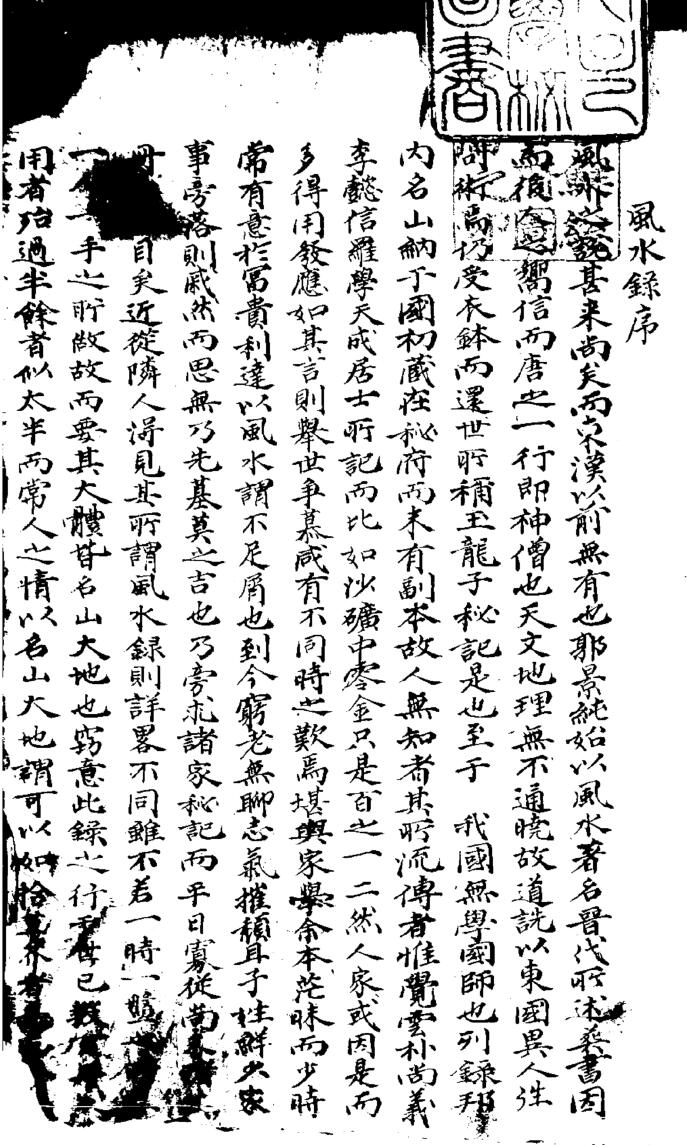 風水錄序
風水之說甚来尚矣而宋漢以前無有也郭景純始以風水著名晋代所述葬書因
而後人嚮信而唐之一行即神僧也天文地理無不通曉故道詵以東國異人往
問術焉仍受衣鉢而還世所稱玉龍子秘記是也至于 我國無學國師也列錄邦
内名山納于國初蔵在秘府而未有副本故人無知者其所流傳者惟覺雲朴尚義
李懿信羅學天成居士所記而比如沙礦中零金只是百之一二然人家或因是而
多得用發應如其言則舉世争慕咸有不同時之歎焉堪輿家學余本茫昧而少時
常有意於冨貴利達以風水謂不足屑也到今窮老無聊志氣摧頹且子姓鮮少家
事旁落則戚然而思無乃先基莫之吉也乃旁求諸家秘記而平日寡從
目矣近從隣人淂見其所謂風水録則詳畧不同雖不若一時一
一 手之所做故而要其大體皆名山大地也窃意此録之行于世已
用者殆過半餘者似太半而常人之情以名山大地謂可以如拾